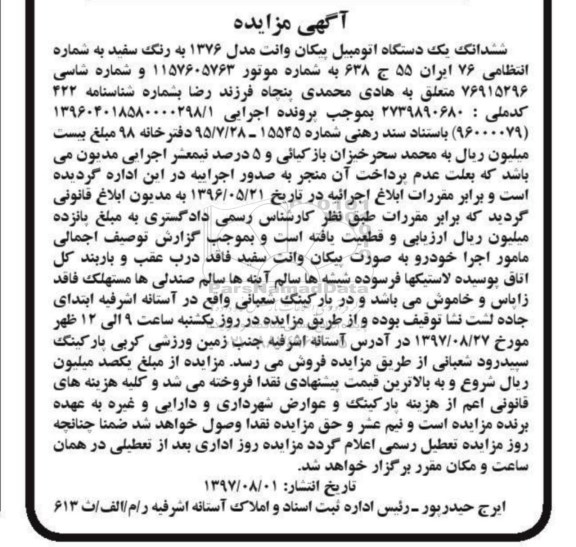 آگهی مزایده
ششدانگ یک دستگاه اتومبیل پیکان وانت مدل ۱۳۷۶ به رنگ سفید به شماره
انتظامی ۷۶ ایران ۵۵ ج ۶۳۸ به شماره موتور ۱۱۵۷۶۰۵۷۶۳ و شماره شاسی
۷۶۹۱۵۲۹۶ متعلق به هادی محمدی پنچاه فرزند رضا بشماره شناسنامه ۴۲۲
کدملی : ۲۷۳۹۸۹۰۶۸۰ بموجب پرونده اجرایی ۱۳۹۶۰۴۰۱۸۵۸۰۰۰۰۲۹۸/۱
(۹۶۰۰۰۰۷۹) باستناد سند رهنی شماره ۱۵۵۴۵ ـ ۹۵/۷/۲۸ دفترخانه ۹۸ مبلغ بیست
میلیون ریال به محمد سحرخیزان بازکیائی و ۵ درصد نیمعشر اجرایی مدیون می
باشد که بعلت عدم پرداخت آن منجر به صدور اجراییه در این اداره گردیده
است و برابر مقررات ابلاغ اجرائیه در تاریخ ۱۳۹۶/۰۵/۲۱ به مدیون ابلاغ قانونی
گردید که برابر مقررات طبق نظر کارشناس رسمی دادگستری به مبلغ پانزده
میلیون ریال ارزیابی و قطعیت یافته است و بموجب گزارش توصیف اجمالی
مامور اجرا خودرو به صورت پیکان وانت سفید فاقد درب عقب و باربند کل
اتاق پوسیده لاستیکها فرسوده شیشه ها سالم آینه ها سالم صندلی ها مستهلک فاقد
زاپاس و خاموش می باشد و در پارکینگ شعبانی واقع در آستانه اشرفیه ابتدای
جاده لشت نشا توقیف بوده و از طریق مزایده در روز یکشنبه ساعت ۹ الی ۱۲ ظهر
مورخ ۱۳۹۷/۰۸/۲۷ در آدرس آستانه اشرفیه جنب زمین ورزشی کربی پارکینگ
سپیدرود شعبانی از طریق مزایده فروش می رسد. مزایده از مبلغ یکصد میلیون
ریال شروع و به بالاترین قیمت پیشنهادی نقدا فروخته می شد و کلیه هزینه های
قانونی اعم از هزینه پارکینگ و عوارض شهرداری و دارایی و غیره به عهده
برنده مزایده است و نیم عشر و حق مزایده نقدا وصول خواهد شد ضمنا چنانچه
روز مزایده تعطیل رسمی اعلام گردد مزایده روز اداری بعد از تعطیلی در همان
ساعت و مکان مقرر برگزار خواهد شد.
تاریخ انتشار: ۱۳۹۷/۰۸/۰۱
ایرج حیدرپور ـ رئیس اداره ثبت اسناد و املاک آستانه اشرفیه ر/م/الف/ث ۶۱۳
ParsNamadData